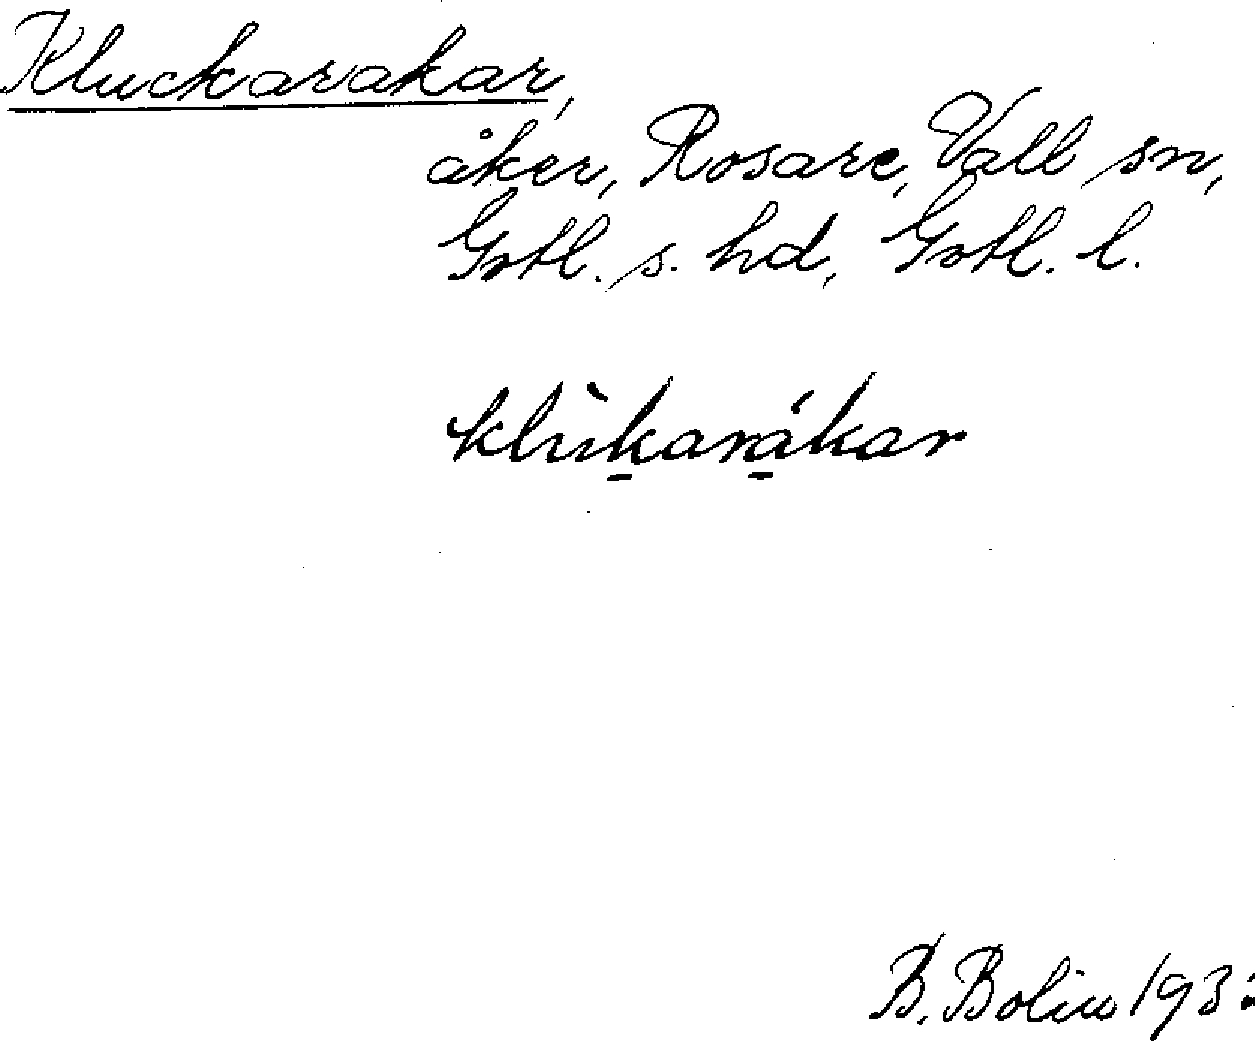 Kluckarakar,
åker, Rosarc, Vall sn,
Gotl. s. hd, Gotl. l.
klùkarákar
B. Bolin 193